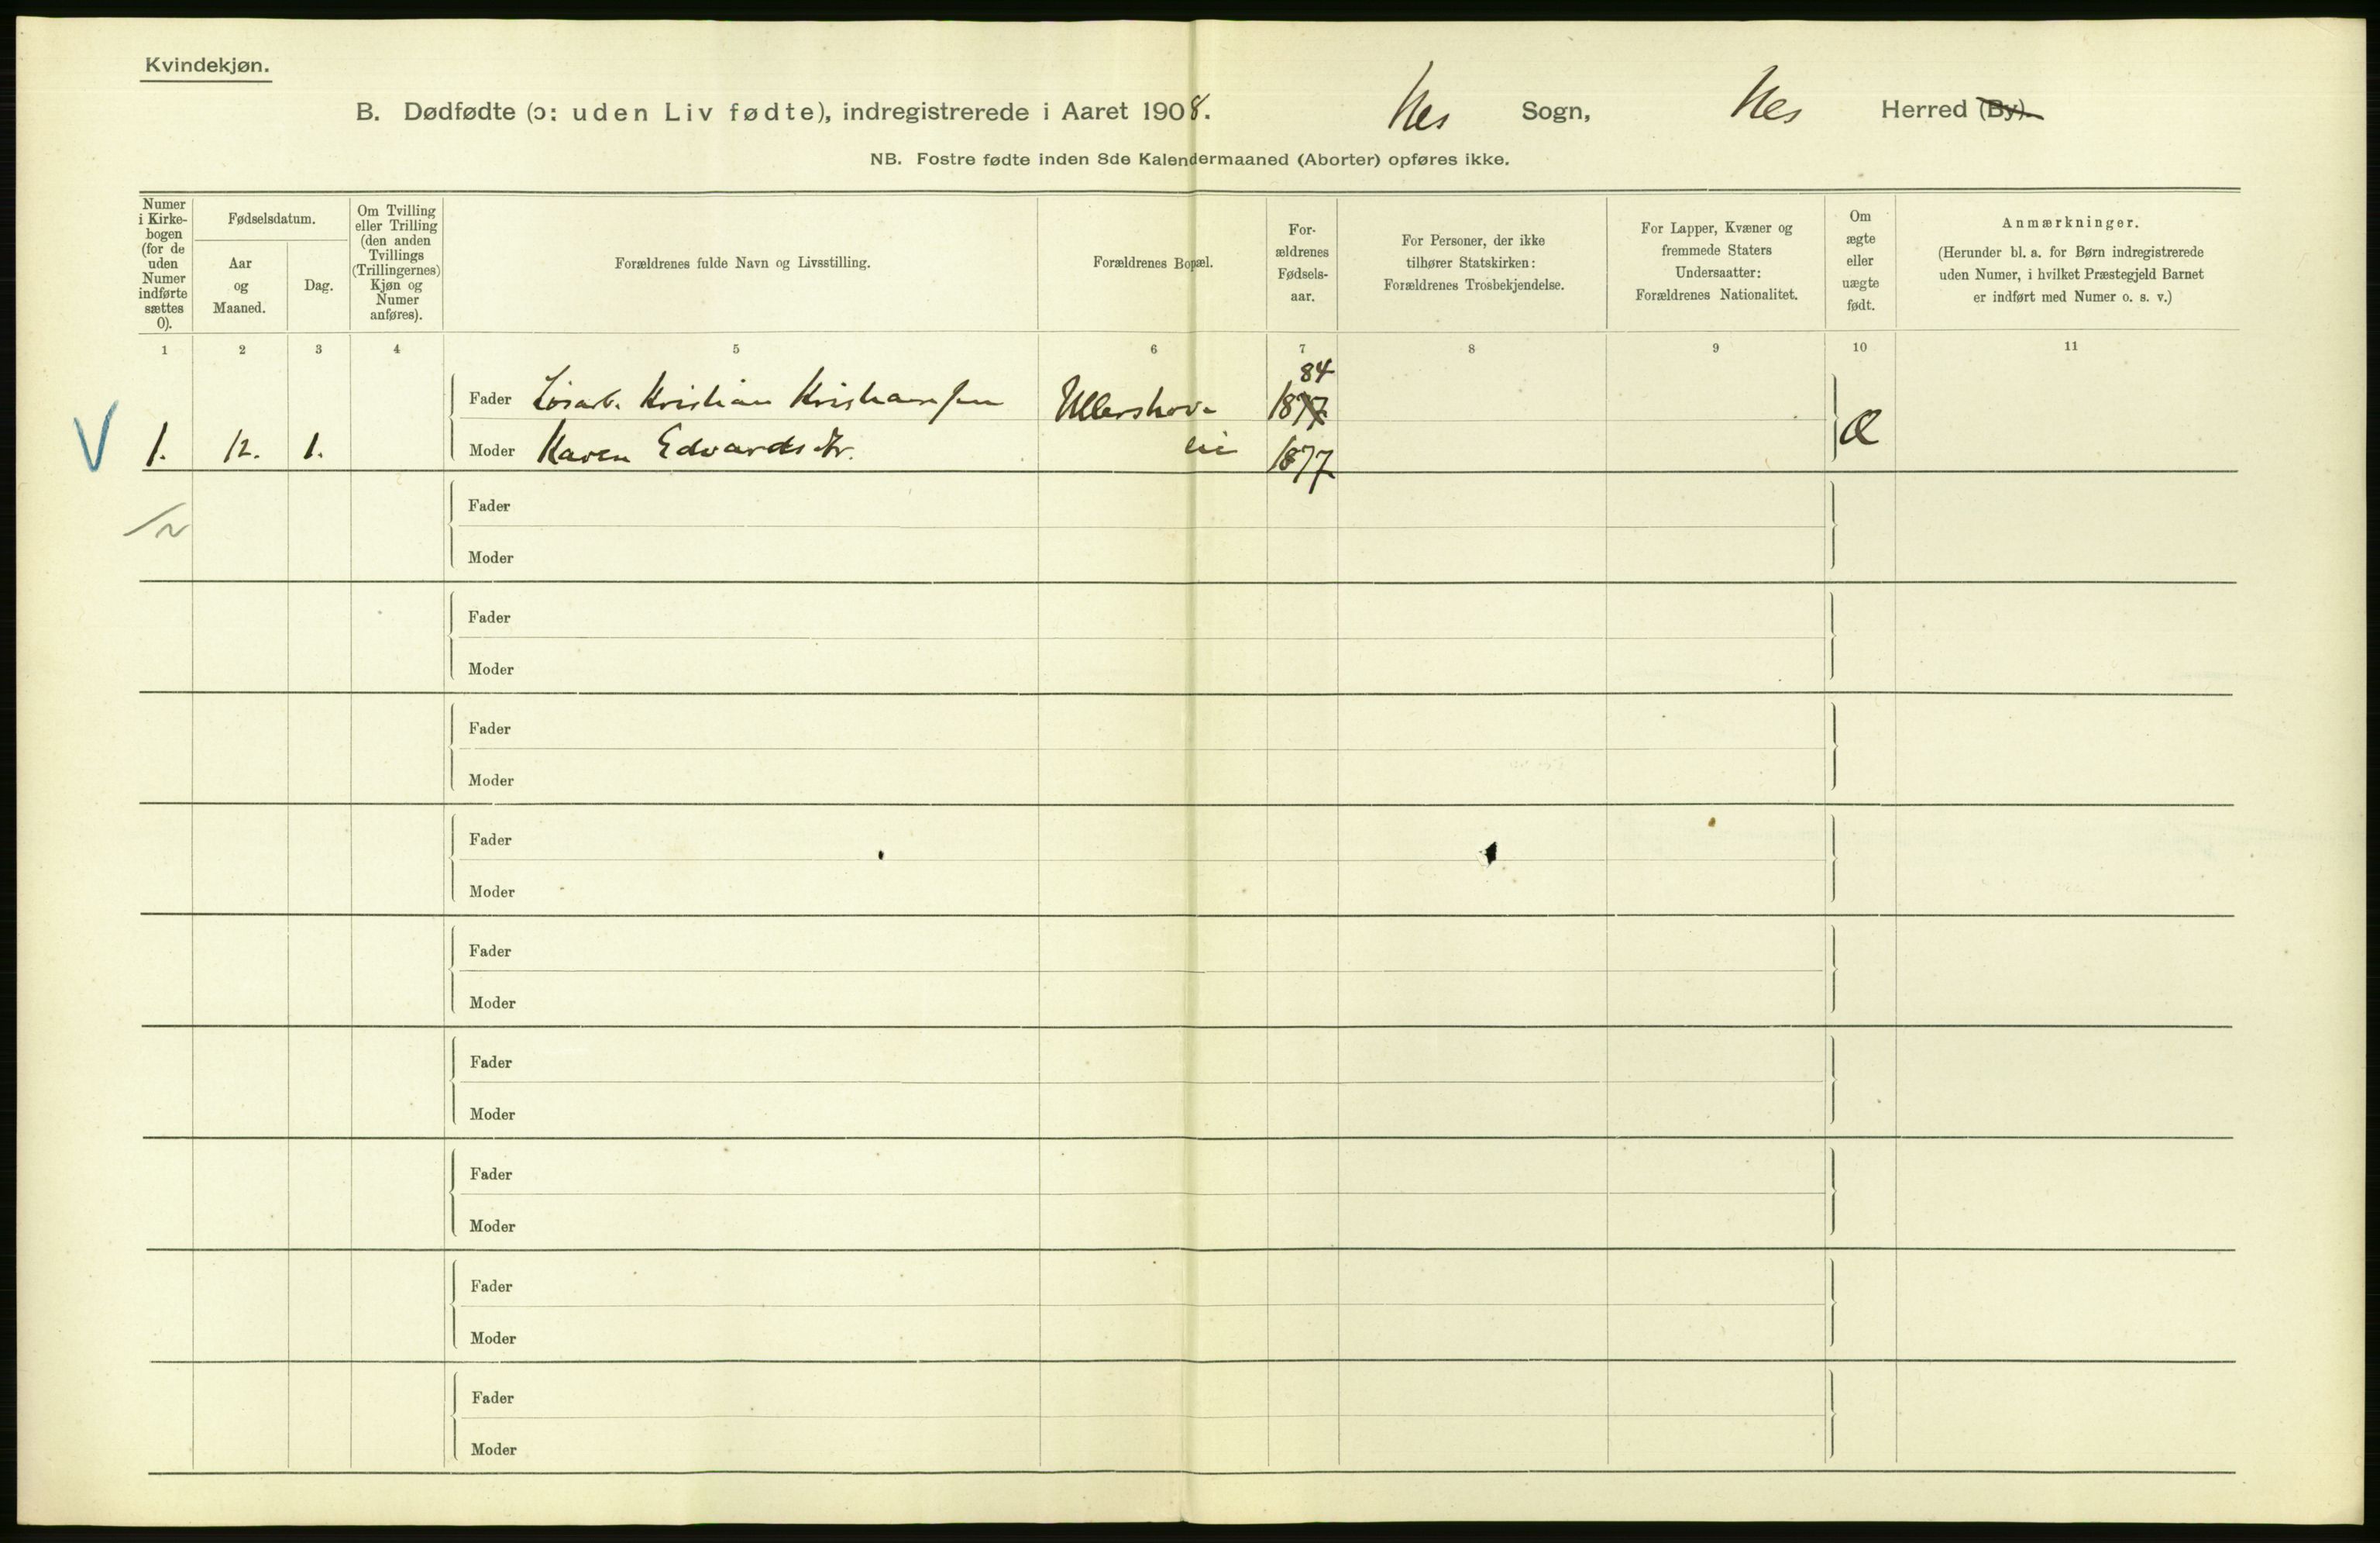 Kvindekjøn.
B. Dødfødte (ɔ: uden Liv fødte), indregistrerede i Aaret 1908. Nes Sogn, Nes Herred (By).
NB. Fostre fødte inden 8de Kalendermaaned (Aborter) opføres ikke.
Numer
i Kirke-
bogen
(for de
uden
Numer
indførte
sættes
0).
Fødselsdatum.
Aar
og
Maaned.
Dag.
Om Tvilling
eller Trilling
(den anden
Tvillings
(Trillingernes)
Kjøn og
Numer
anføres).
Forældrenes fulde Navn og Livsstilling.
Forældrenes Bopæl.
For-
ældrenes
Fødsels-
aar.
For Personer, der ikke
tilhører Statskirken:
Forældrenes Trosbekjendelse.
For Lapper, Kvæner og
fremmede Staters
Undersaatter:
Forældrenes Nationalitet.
Om
ægte
eller
uægte
født.
Anmærkninger.
(Herunder bl. a. for Børn indregistrerede
uden Numer, i hvilket Præstegjeld Barnet
er indført med Numer o. s. v.)
1 2 3 4 5 6 7 8 9 10 11
84
Fader Løsarb. Kristian Kristiansen Ullershov- 1877
V 1. 12. 1. Moder Karen Edvardsdtr. eie 1877 Æ
Fader
Moder
Fader
Moder
Fader
Moder
Fader
Moder
Fader
Moder
Fader
Moder
Fader
Moder
Fader
Moder
Fader
Moder